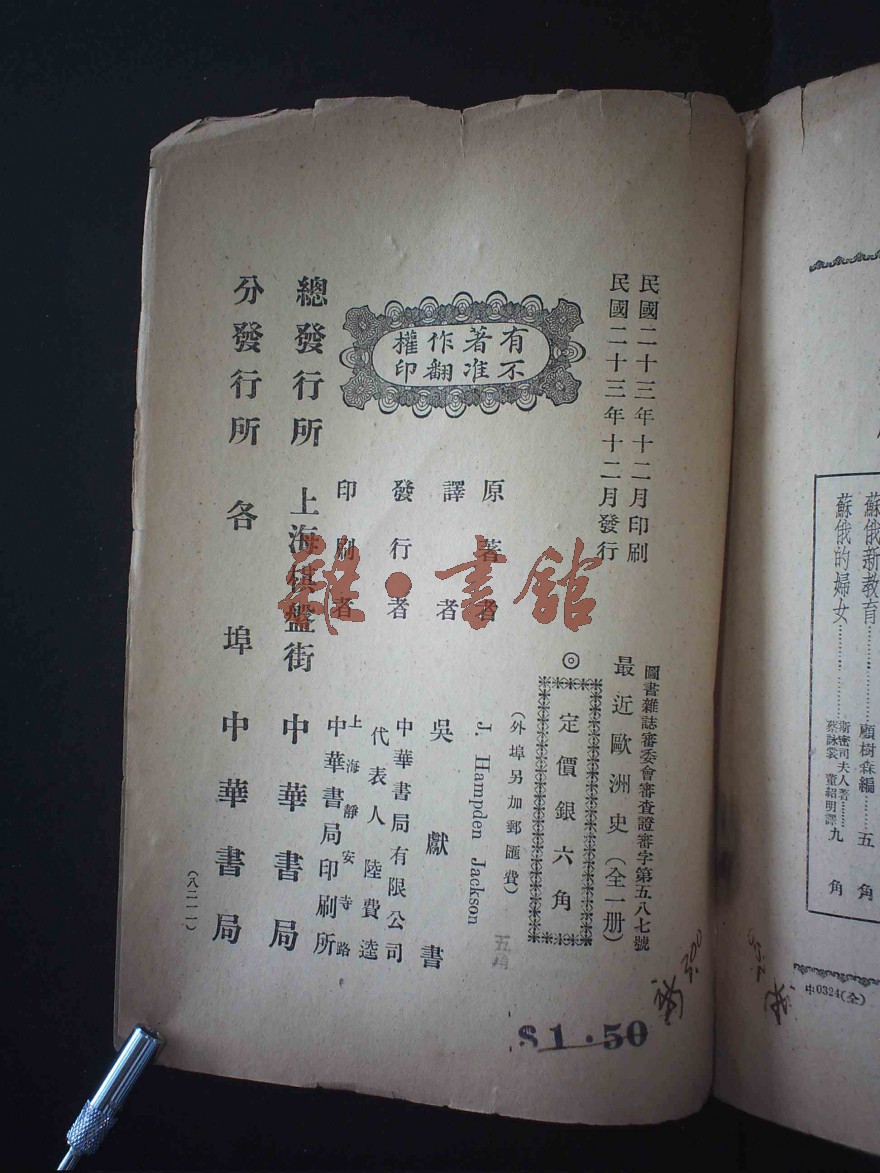 民國二十三年十二月印刷
民國二十三年十二月發行
圖書雜誌審委會審查證審字第五八七號
最近歐洲史（全一册）
◎定價銀六角
（外埠另加郵匯費）
有著作權
不准翻印
原著者 J. Hampden Jackson
譯者 吳獻書
發行者 中華書局有限公司
代表人 陸費逵
印刷者 上海靜安寺路
中華書局印刷所
總發行所 上海棋盤街 中華書局
分發行所 各埠 中華書局
（八二一一）
$1.50
雜·書館
蘇俄新教育……顧樹森編……五角
蘇俄的婦女……斯密司夫人著
蔡詠裳 董紹明譯……九角
中0324(全)